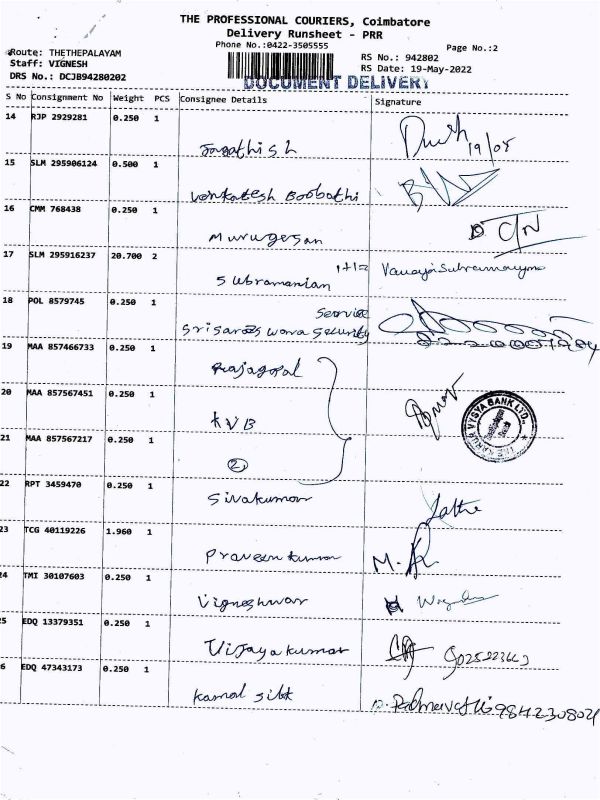 THE PROFESSIONAL COURIERS, Coimbatore
Delivery Runsheet - PRR
Phone No.:0422-3505555
Page No.:2
Route: THETHEPALAYAM
Staff: VIGNESH
DRS No.: DCJB94280202
RS No.: 942802
RS Date: 19-May-2022
DOCUMENT DELIVERY
S No Consignment No Weight PCS Consignee Details Signature
14 RJP 2929281 0.250 1
19/05
15 SLM 295906124 0.500 1
Venkatesh Boobathi
16 CMM 768438 0.250 1
Murugesan
17 SLM 295916237 20.700 2
1+1=
Subramanian
18 POL 8579745 0.250 1
Service
Security
19 MAA 857466733 0.250 1
Rajagopal
20 MAA 857567451 0.250 1
KVB
21 MAA 857567217 0.250 1
2
THE KARUR VYSYA BANK LTD.
22 RPT 3459470 0.250 1
Sivakumar
23 TCG 40119226 1.960 1
Praveen kumar
24 TMI 30107603 0.250 1
Vigneshwar
25 EDQ 13379351 0.250 1
Vijaya kumar
26 EDQ 47343173 0.250 1